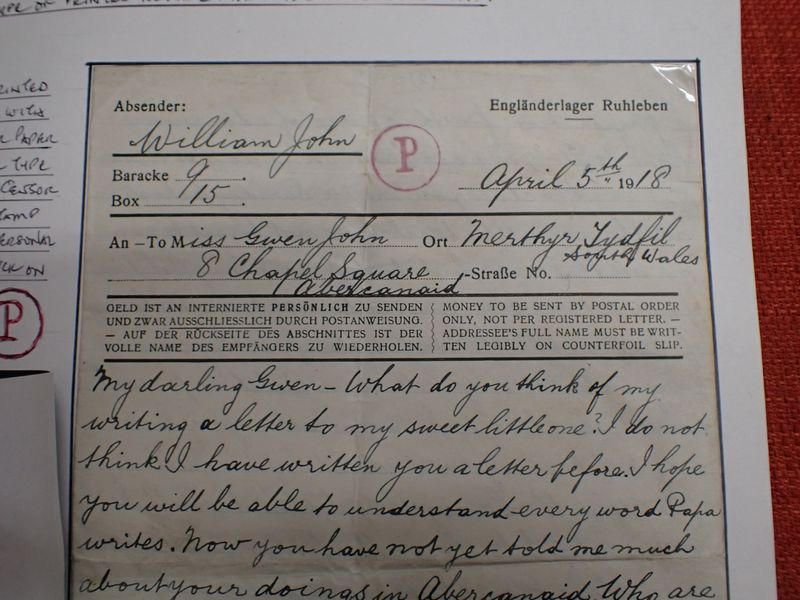 Absender:
Engländerlager Ruhleben
William John
P
Baracke 9
Box 15
April 5th 1918
An – To Miss Gwen John Ort Merthyr Tydfil
South Wales
8 Chapel Square -Straße No.
Abercanaid
GELD IST AN INTERNIERTE PERSÖNLICH ZU SENDEN
UND ZWAR AUSSCHLIESSLICH DURCH POSTANWEISUNG.
— AUF DER RÜCKSEITE DES ABSCHNITTES IST DER
VOLLE NAME DES EMPFÄNGERS ZU WIEDERHOLEN.
MONEY TO BE SENT BY POSTAL ORDER
ONLY, NOT PER REGISTERED LETTER. —
ADDRESSEE'S FULL NAME MUST BE WRIT-
TEN LEGIBLY ON COUNTERFOIL SLIP.
My darling Gwen – What do you think of my
writing a letter to my sweet little one? I do not
think I have written you a letter before. I hope
you will be able to understand every word Papa
writes. Now you have not yet told me much
about your doings in Abercanaid. Who are
WITH
PAPER
TYPE
P